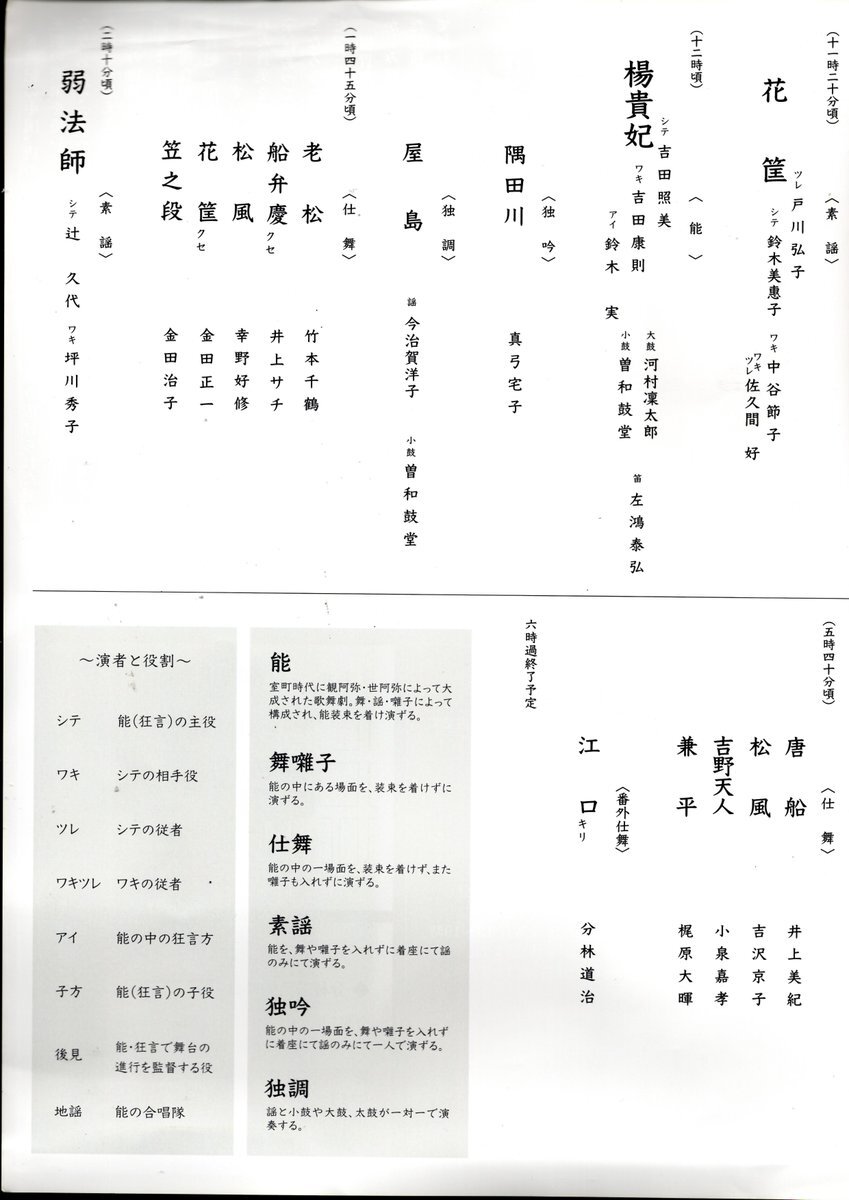 (十一時二十分頃)
〈素謡〉
花筐
ツレ 戸川弘子
シテ 鈴木美惠子
ワキ 中谷節子
ワキツレ 佐久間 好
(十二時頃)
〈能〉
楊貴妃
シテ 吉田照美
ワキ 吉田康則
アイ 鈴木 実
大鼓 河村凜太郎
小鼓 曽和鼓堂
笛 左鴻泰弘
〈独吟〉
隅田川 真弓宅子
〈独調〉
屋島 謡 今治賀洋子 小鼓 曽和鼓堂
(一時四十五分頃)
〈仕舞〉
老松 竹本千鶴
船弁慶 クセ 井上サチ
松風 幸野好修
花筐 クセ 金田正一
笠之段 金田治子
(二時十分頃)
〈素謡〉
弱法師 シテ 辻 久代 ワキ 坪川秀子
(五時四十分頃)
〈仕舞〉
唐船 井上美紀
松風 吉沢京子
吉野天人 小泉嘉孝
兼平 梶原大暉
〈番外仕舞〉
江口 キリ 分林道治
六時過終了予定
能
室町時代に観阿弥・世阿弥によって大
成された歌舞劇。舞・謡・囃子によって
構成され、能装束を着け演ずる。
舞囃子
能の中にある場面を、装束を着けずに
演ずる。
仕舞
能の中の一場面を、装束を着けず、また
囃子も入れずに演ずる。
素謡
能を、舞や囃子を入れずに着座にて謡
のみにて演ずる。
独吟
能の中の一場面を、舞や囃子を入れず
に着座にて謡のみにて一人で演ずる。
独調
謡と小鼓や大鼓、太鼓が一対一で演
奏する。
～演者と役割～
シテ 能(狂言)の主役
ワキ シテの相手役
ツレ シテの従者
ワキツレ ワキの従者
アイ 能の中の狂言方
子方 能(狂言)の子役
後見 能・狂言で舞台の
進行を監督する役
地謡 能の合唱隊